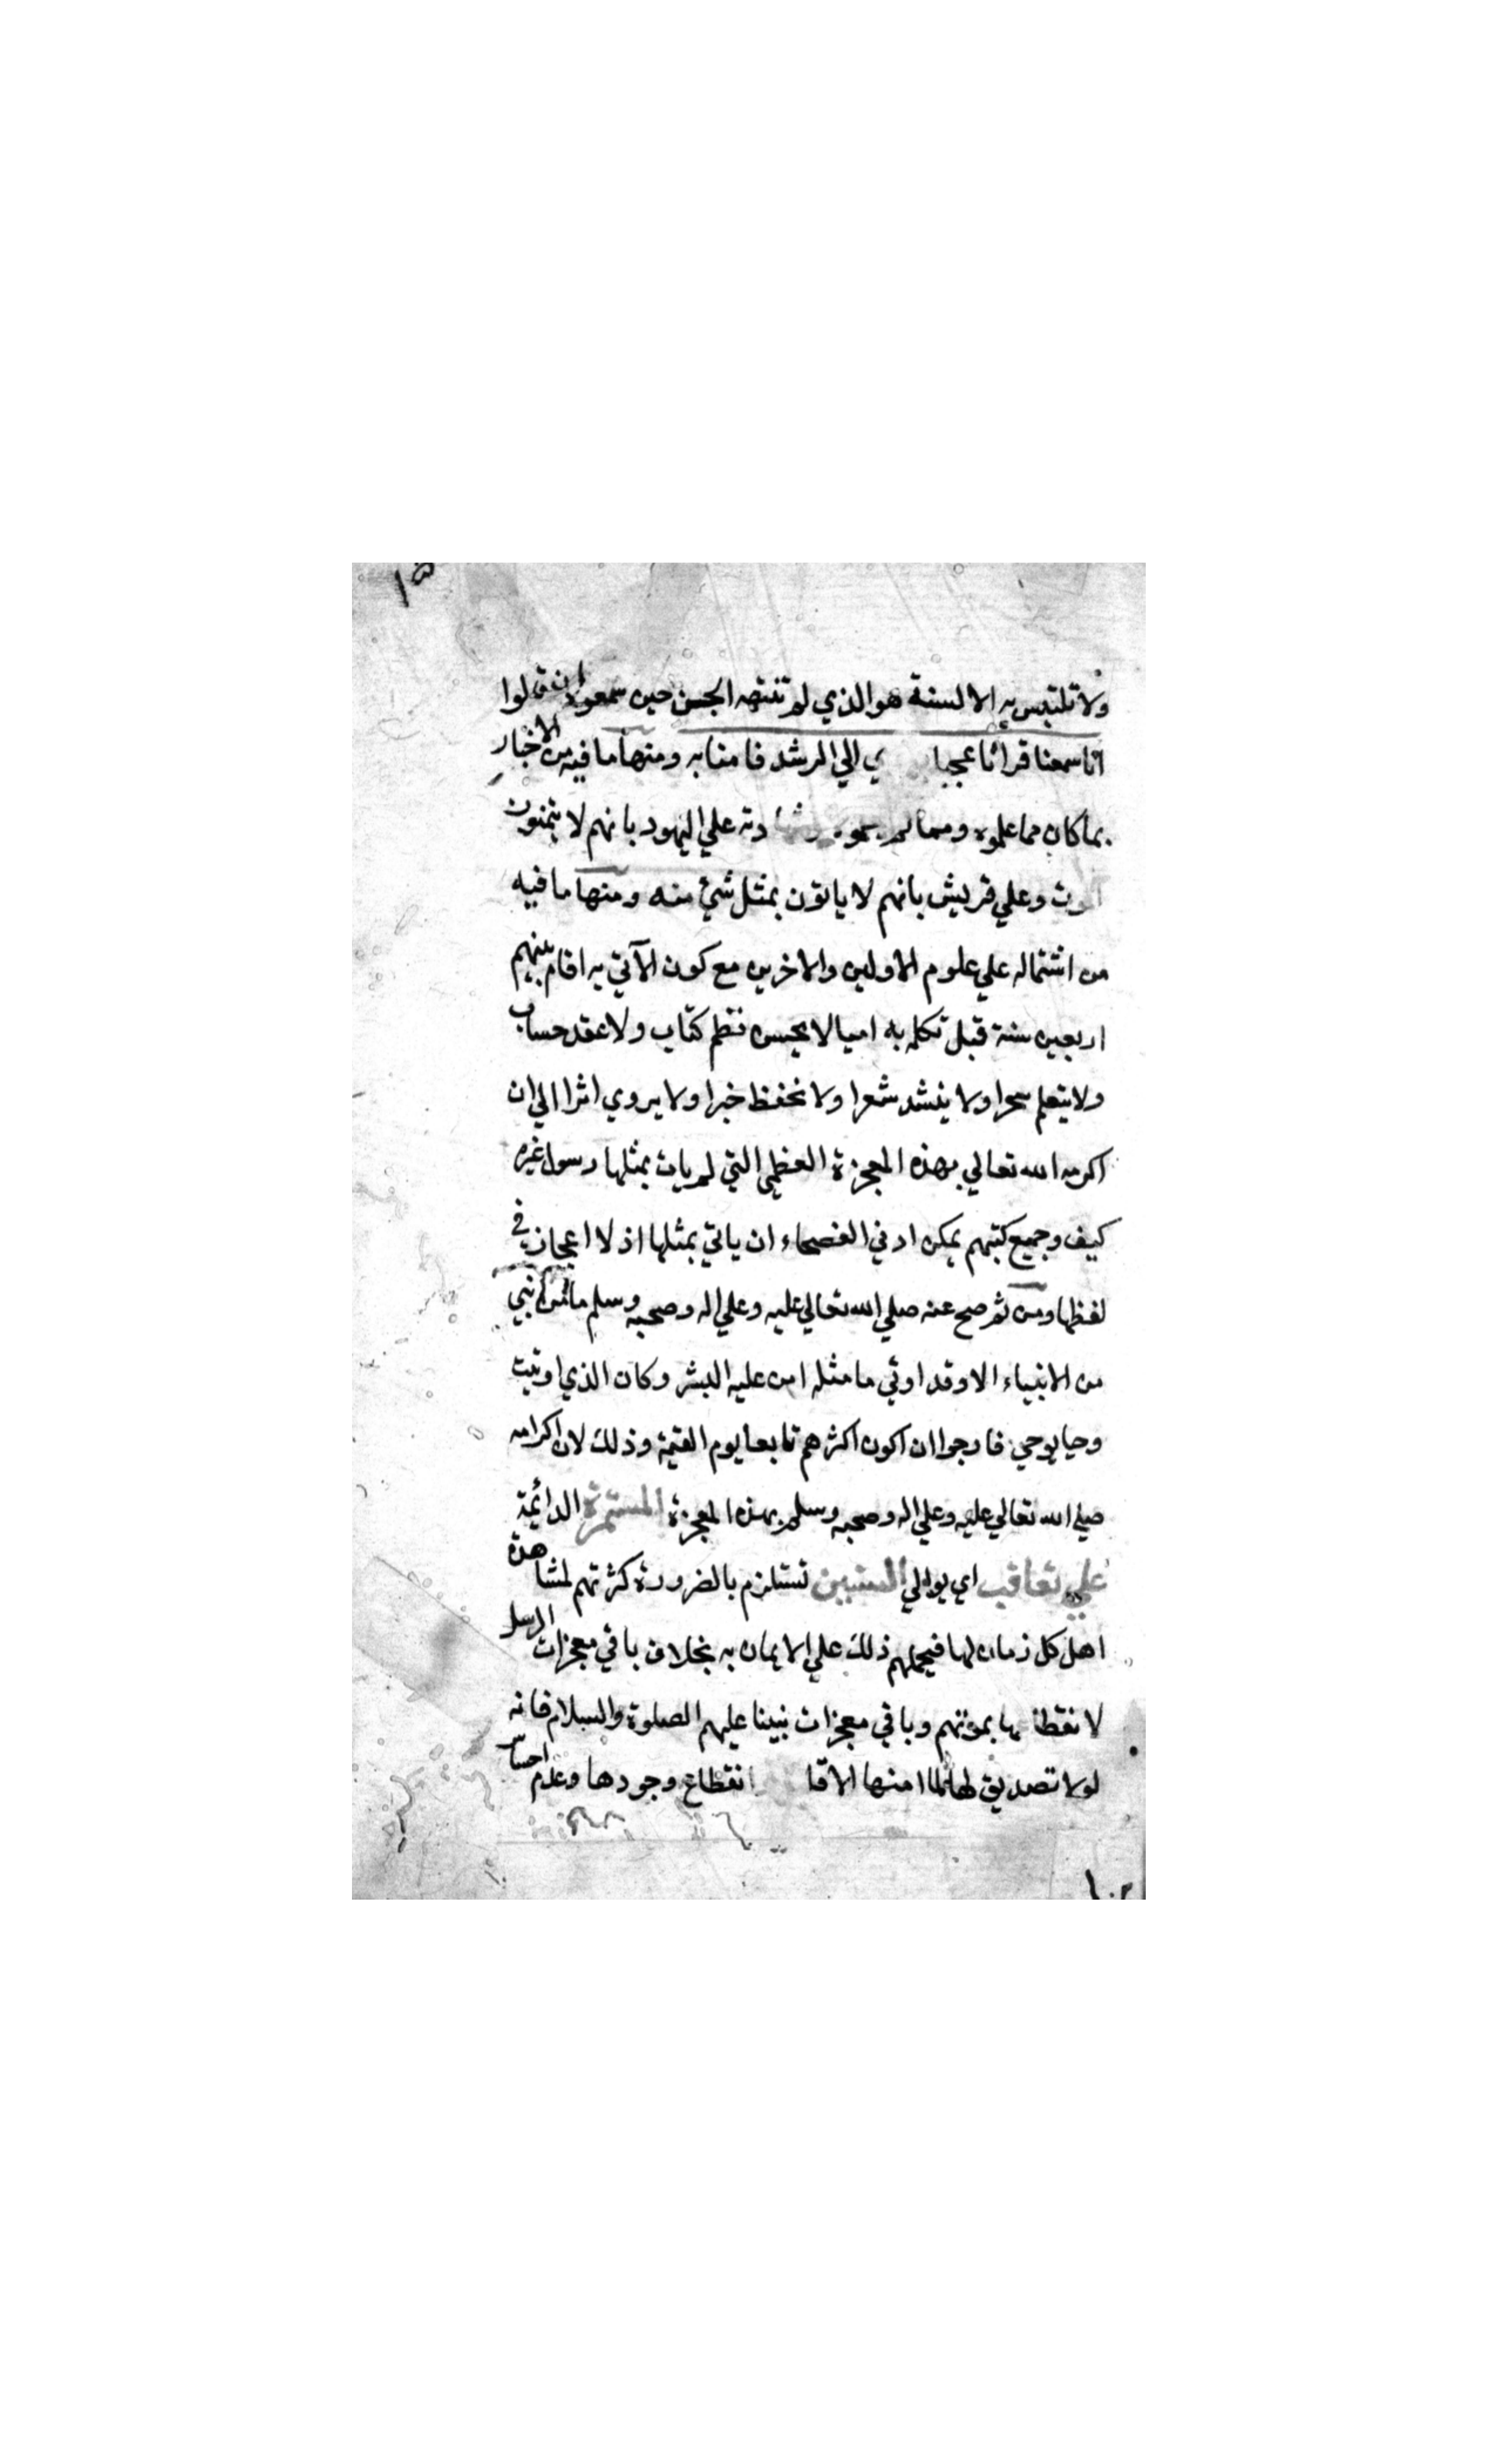 ولا تلتبس به الالسنة هو الذي لم تنته الجن حين سمعوه ان قالوا
انا سمعنا قرانا عجبا ي الي الرشد فامنا به ومنها ما فيه من الاخبار
بما كان مما علموه ومما لم دته علي اليهود بانهم لا يتمنون
وعلي قريش بانهم لا ياتون بمثل شئ منه ومنها ما فيه
من اشتماله علي علوم الاولين والاخرين مع كون الآتي به اقام بينهم
اربعين سنة قبل تكلمه به اميا لا يحسن نظم كتاب ولا عقد حساب
ولا يتعلم سحرا ولا ينشد شعرا ولا يحفظ خبرا ولا يروي اثرا الي ان
اكرمه الله تعالي بهذه المعجزة العظمي التي لم يات بمثلها رسول غيره
كيف وجميع كتبهم يمكن ادني الفصحاء ان ياتي بمثلها اذ لا اعجاز في
لفظها ومن ثم صح عنه صلي الله تعالي عليه وعلي اله وصحبه وسلم ما من نبي
من الانبياء الا وقد اوتي ما مثله امن عليه البشر وكان الذي اوتيت
وحيا يوحي فارجوا ان اكون اكثرهم تابعا يوم القيمة وذلك لان اكرامه
صلي الله تعالي عليه وعلي اله وصحبه وسلم بهذه المعجزة المستمرة الدائمة
علي تعاقب اي يوالي السنين تستلزم بالضرورة كثرتهم لمشاهدة
اهل كل زمان لها فيحملهم ذلك علي الايمان به بخلاف باقي معجزات الرسل
بموتهم وباقي معجزات نبينا عليهم الصلوة والسلام فانه
لولا تصديق منها انقطاع وجودها وعدم احساس